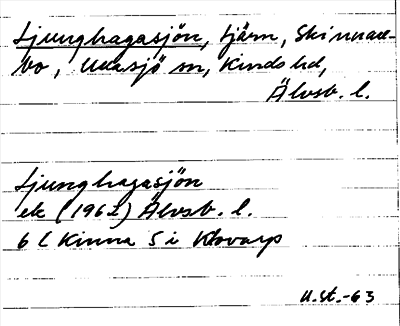 Ljunghagasjön, tjärn, Skinnare-
bo, Ullasjö sn, Kinds hd,
Älvsb. l.
Ljunghagasjön
ek (1962) Älvsb. l.
6 l Kinna 5 i
U.St.-63